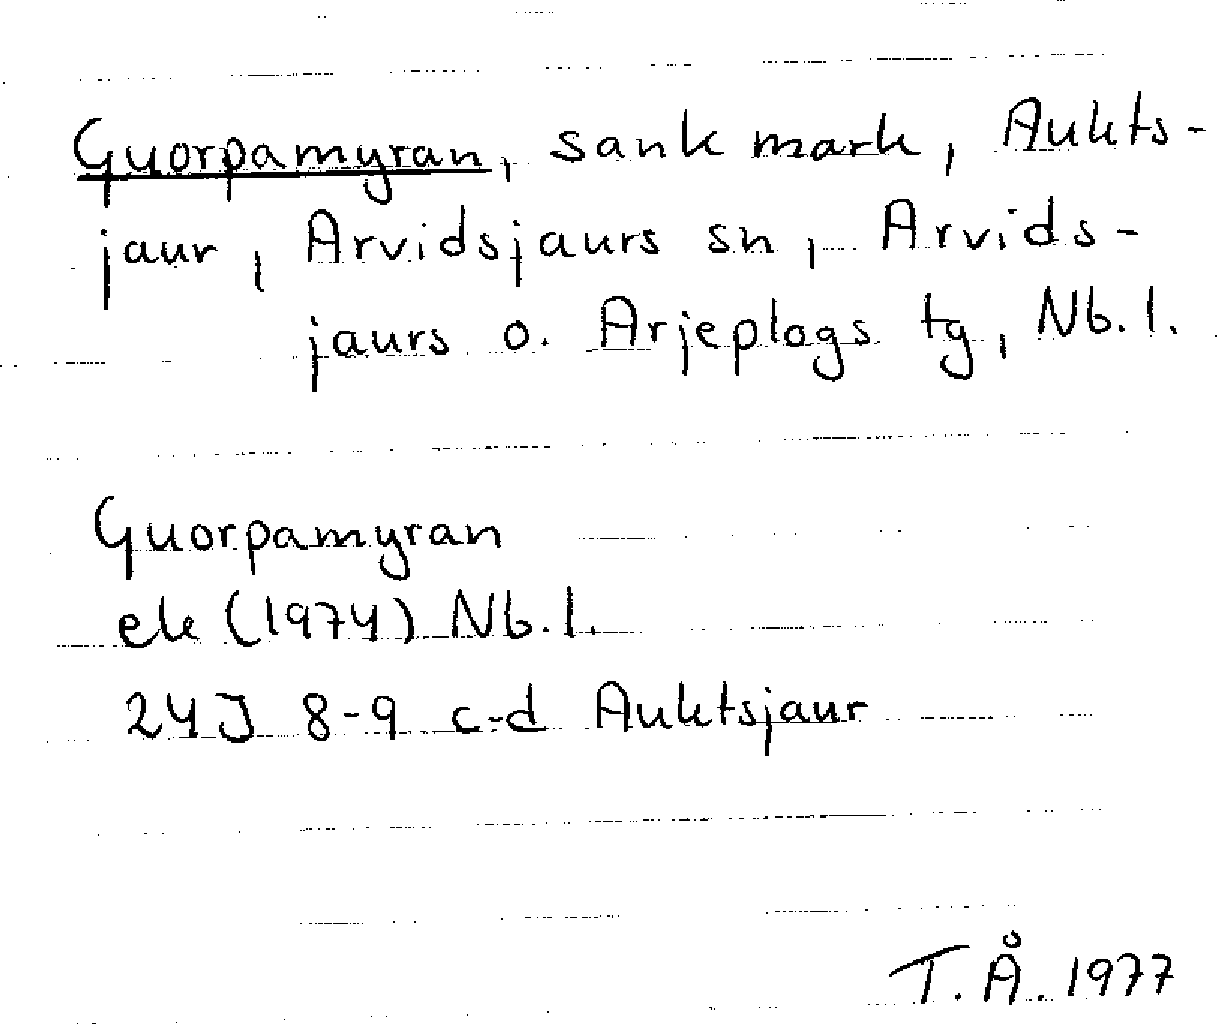 Guorpamyran, sank mark, Aukts-
jaur, Arvidsjaurs sn, Arvids-
jaurs o. Arjeplogs tg, Nb. l.
Guorpamyran
ek (1974) Nb. l.
24J 8-9 c-d Auktsjaur
T. Å. 1977